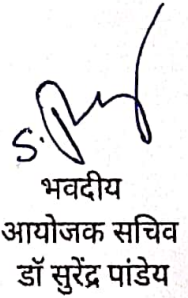 भवदीय
आयोजक सचिव
डॉ सुरेंद्र पांडेय